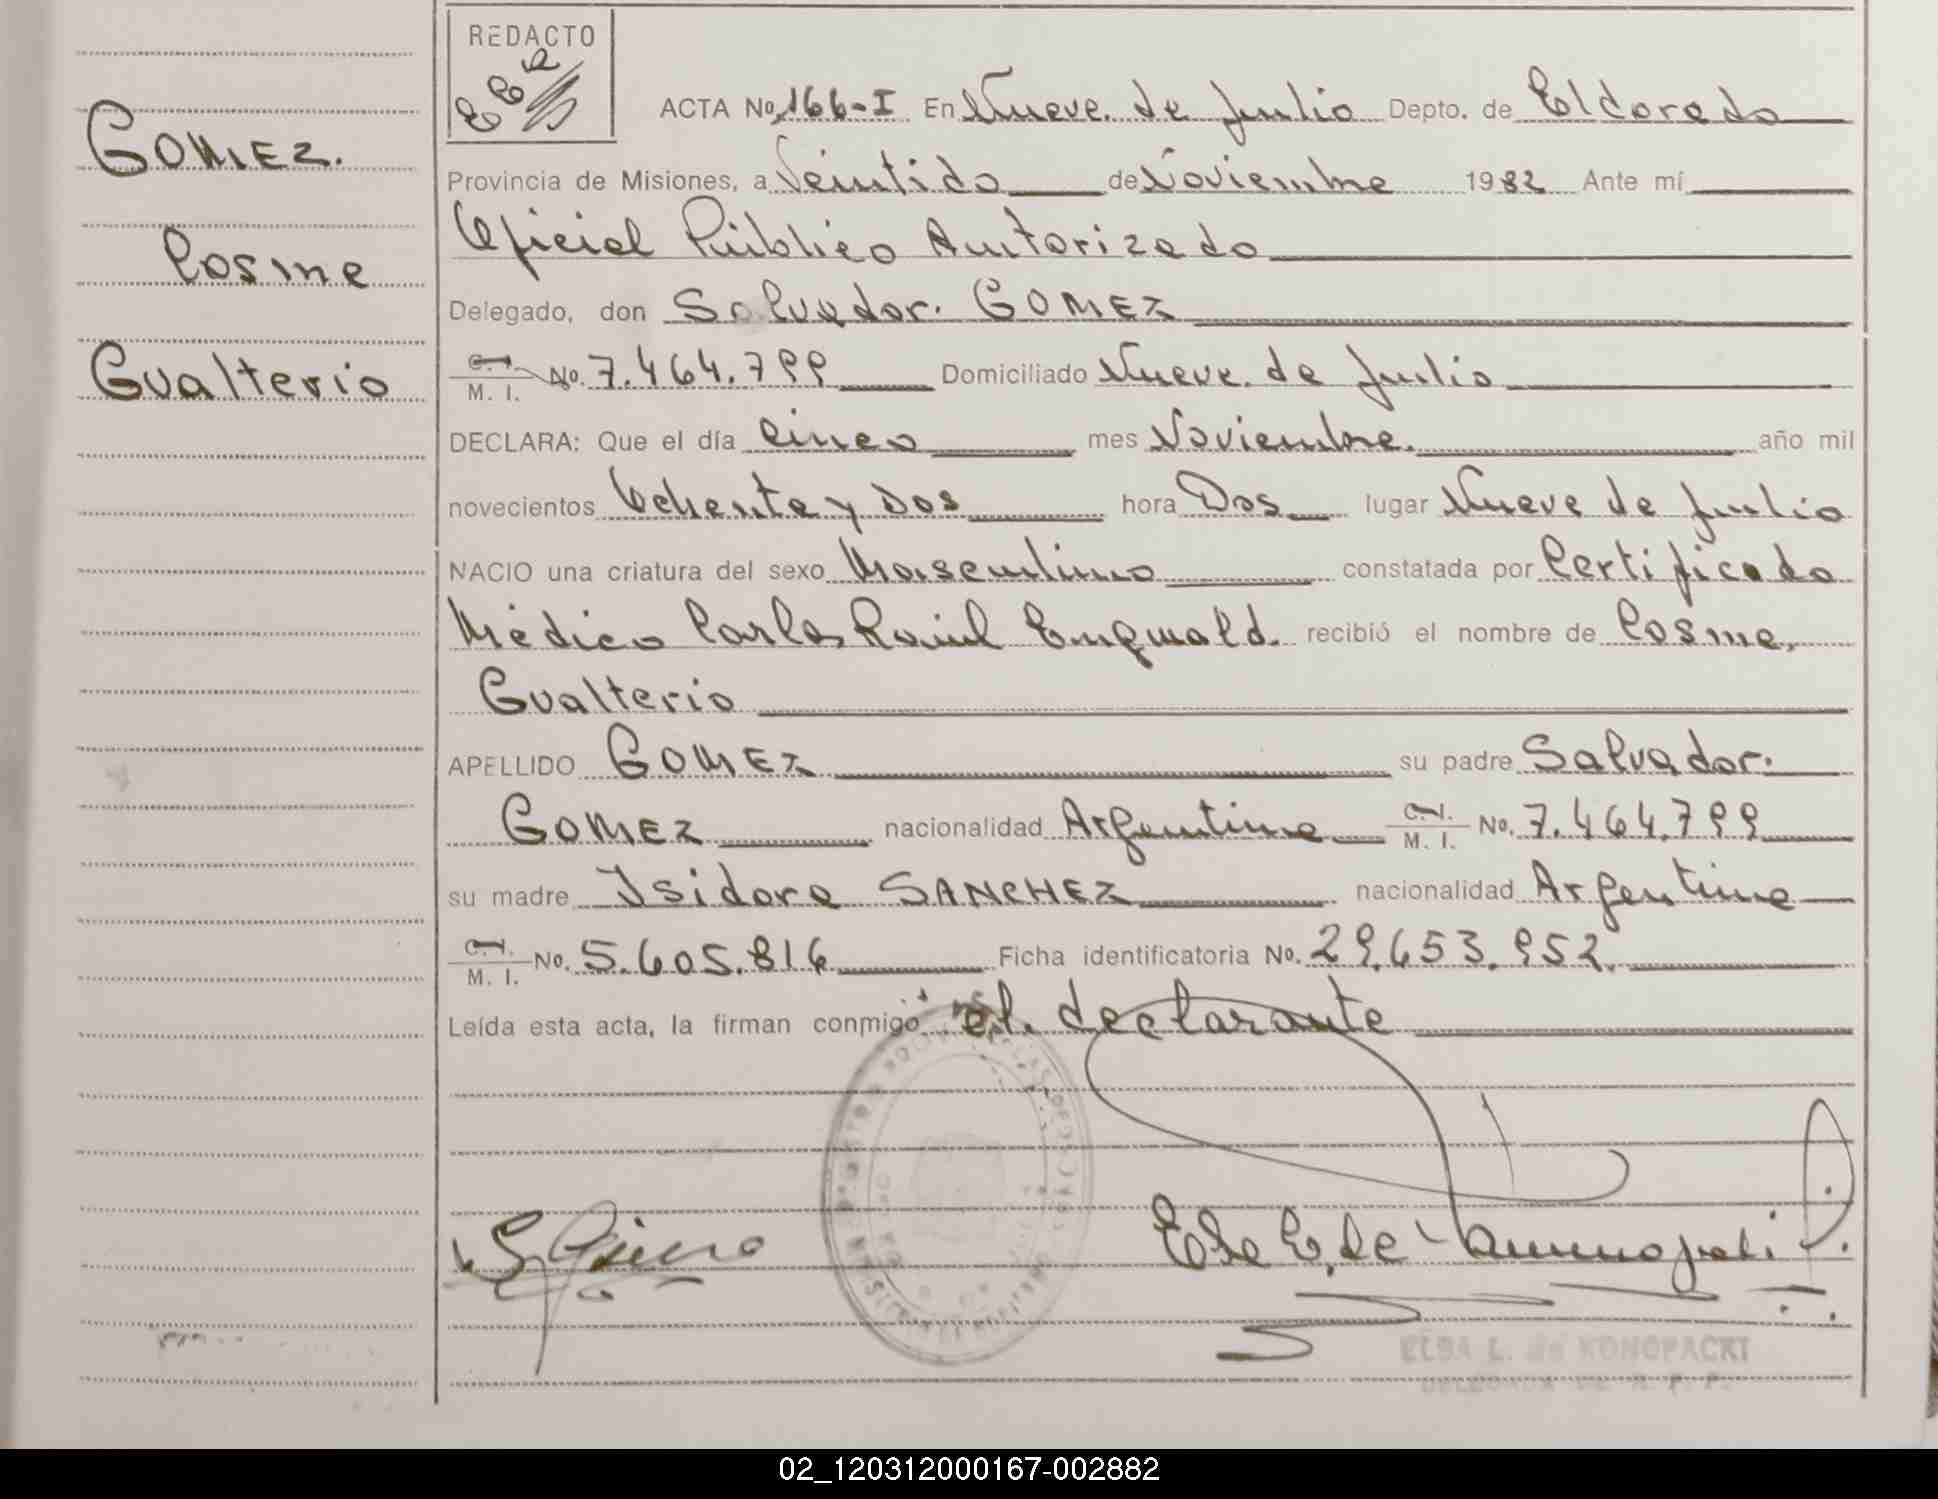 REDACTO
GOMEZ.
Cosme
Gualterio
ACTA No. 166-I En Nueve de Julio Depto. de Eldorado
Provincia de Misiones, a Veintido de Noviembre 1982 Ante mí
Oficial Público Autorizado
Delegado, don Salvador. GOMEZ
C.I. M. I. No. 7.464.799 Domiciliado Nueve de Julio
DECLARA: Que el día Cinco mes Noviembre. año mil
novecientos Ochenta y Dos hora Dos lugar Nueve de Julio
NACIO una criatura del sexo Masculino constatada por Certificado
Médico Carlos Raúl recibió el nombre de Cosme,
Gualterio
APELLIDO GOMEZ su padre Salvador.
GOMEZ nacionalidad Argentina C.I. M. I. No. 7.464.799
su madre Isidora SANCHEZ nacionalidad Argentina
C.I. M. I. No. 5.605.816 Ficha identificatoria No. 29.653.952.
Leída esta acta, la firman conmigo el declarante
ELBA L. de KONOPACKI
DELEGADA DE R. P. P.
02_120312000167-002882